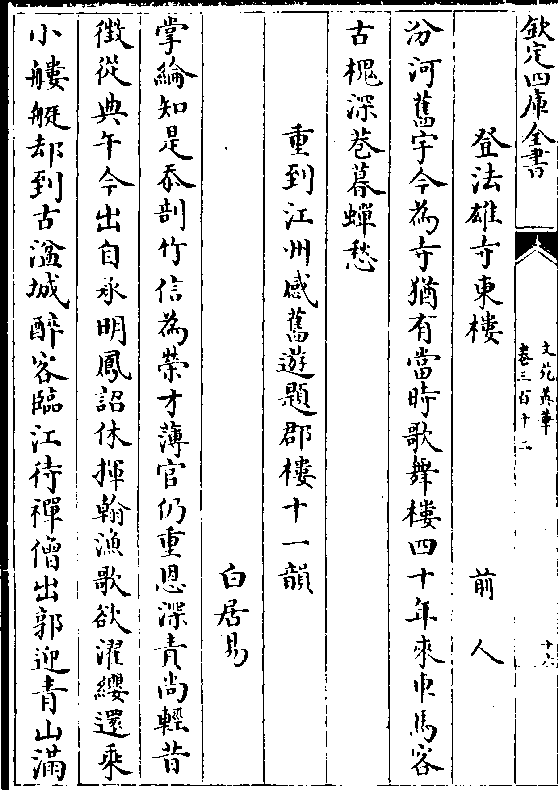 欽定四庫全書
文苑英華
卷三百十二
登法雄寺東樓 前人
汾河舊宇今為寺猶有當時歌舞樓四十年來車馬客
古槐深巷暮蟬愁
重到江州感舊遊題郡樓十一韻
白居易
掌綸知是忝剖竹信為榮才薄官仍重恩深責尚輕昔
徵從典午今出自承明鳳詔休揮翰漁歌欲濯纓還乘
小艛艇却到古湓城醉客臨江待禪僧出郭迎青山滿